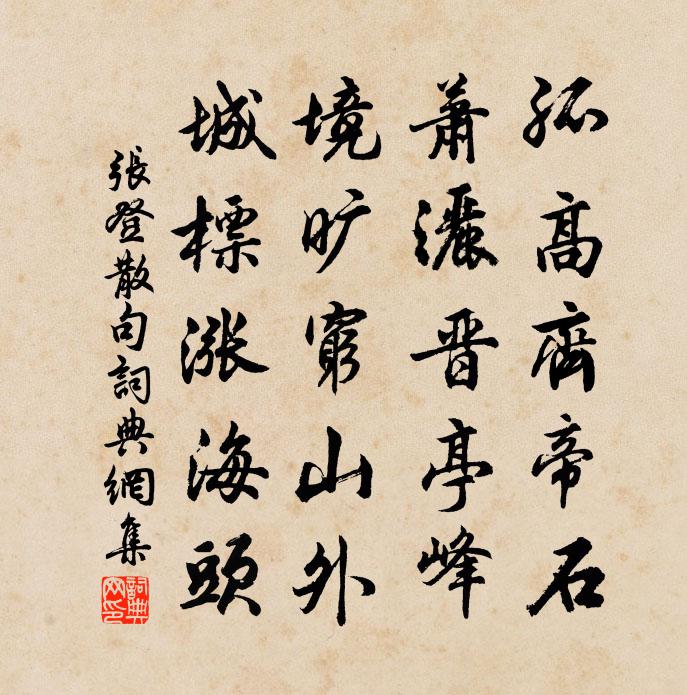 孤高齊帝石
蕭灑晋亭峰
境旷窮山外
城標漲海頭
張登散句詞典網集
詞典网印